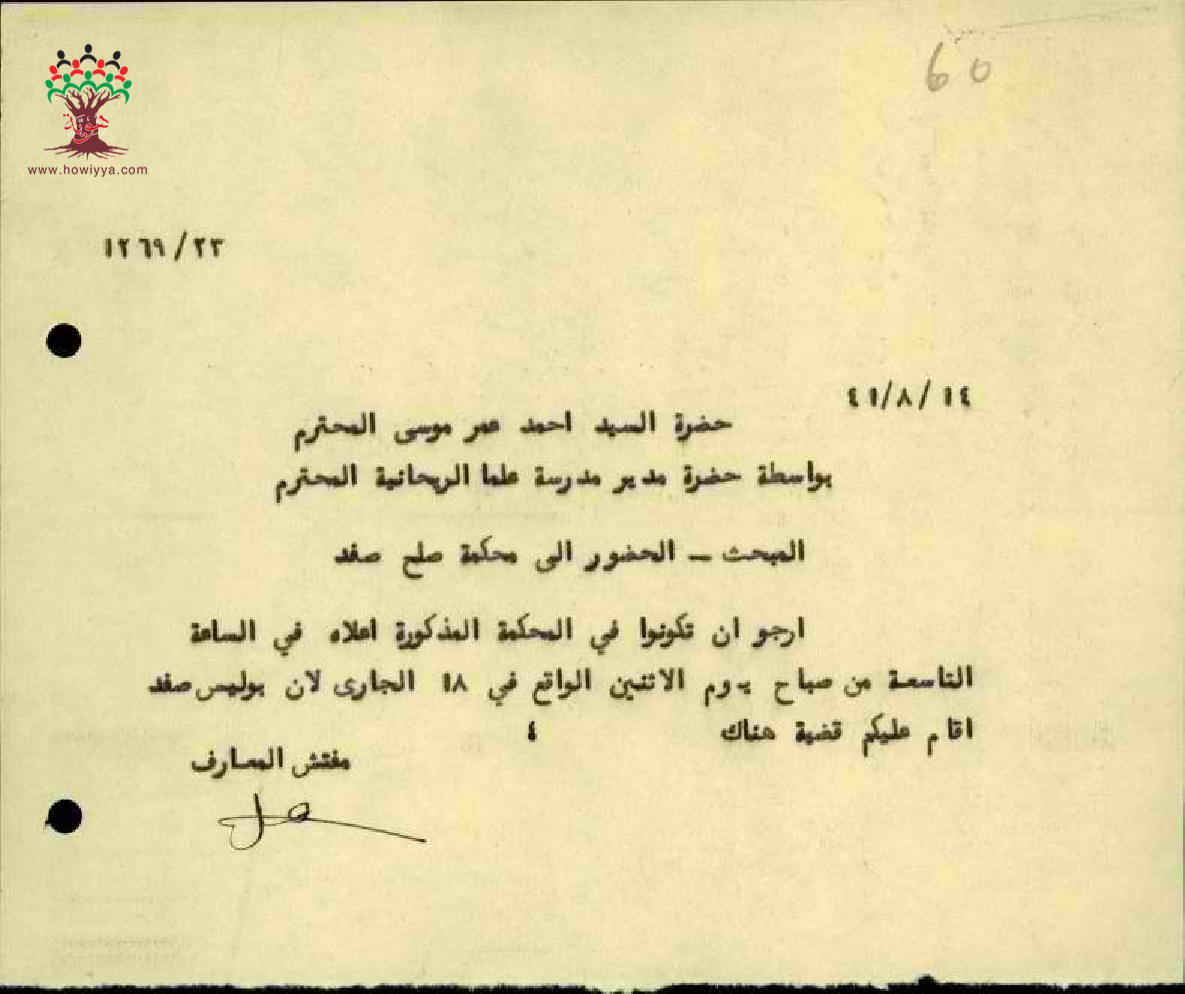 60
هوية
www.howiyya.com
١٢٦٩/٢٣
٤١/٨/١٤
حضرة السيد احمد عمر موسى المحترم
بواسطة حضرة مدير مدرسة علما الريحانية المحترم
المبحث – الحضور الى محكمة صلح صفد
ارجو ان تكونوا في المحكمة المذكورة اعلاه في الساعة
التاسعة من صباح يوم الاثنين الواقع في ١٨ الجارى لان بوليس صفد
اقام عليكم قضية هناك ٤
مفتش المعارف